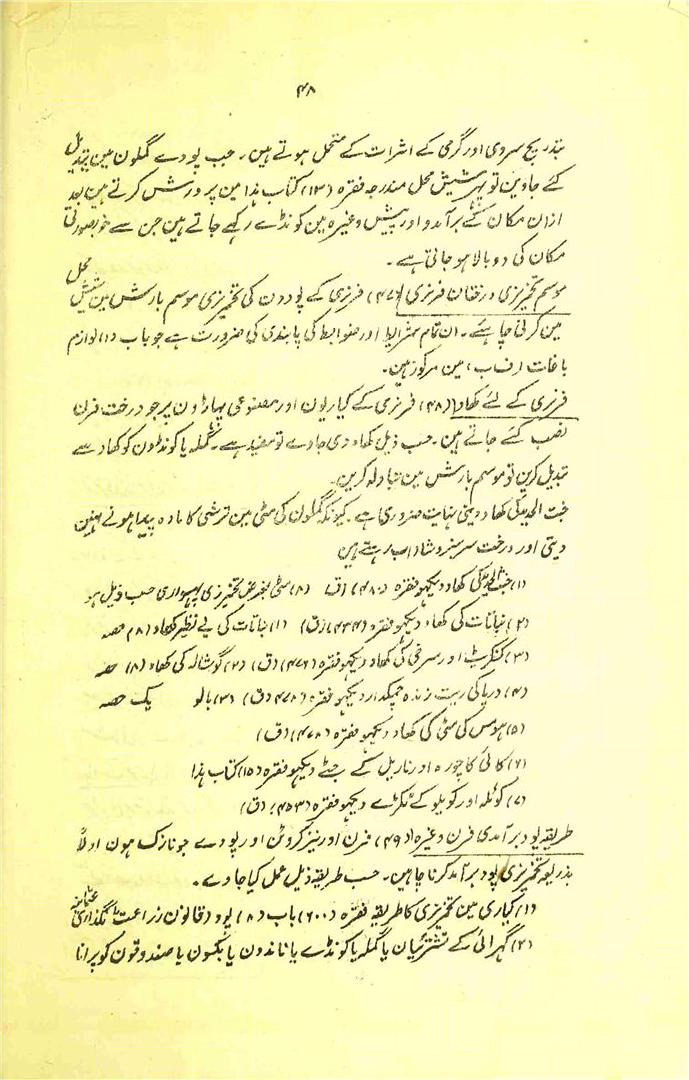 ۴۸
بتدریج سردی اور گرمی کے اثرات کے متحمل ہوتے ہین۔ جب پودے گملون مین تبدیل
کئے جاوین تو پھر شیش محل مندرجہ فقرہ (۱۳) کتاب ہذا مین پرورش کرتے ہین بعد
ازان مکان کے برآمدو اور پیش وغیرہ مین کونڈے رکھے جاتے ہین جن سے خوبصورتی
مکان کی دوبالا ہو جاتی ہے۔
موسم تخمریزی درختان فرنری (۴۷) فرنری کے پودون کی تخمریزی موسم بارش مین شیش محل
مین کرنی چاہئے۔ ان تمام شرایط اور ضوابط کی پابندی کی ضرورت ہے جو باب (۱) لوازم
باغات مین مرکوز ہین۔
فرنری کے لئے کھاد (۴۸) فرنری کے کیاریون اور مصنوعی پہاڑون پر جو درخت فرن
نصب کئے جاتے ہین۔ حسب ذیل کھاد دی جاوے تو مفید ہے۔ گملہ یا کونڈون کو کھاد سے
تبدیل کرین تو موسم بارش مین تبادلہ کرین۔
خبث الحدید کی کھاد دینی نہایت ضروری ہے۔ کیونکہ گملون کی مٹی مین ترشی کا مادہ پیدا ہونے نہین
دیتی اور درخت سرسبز و شاداب رہتے ہین
(۱) خبث الحدید کی کھاد دیکھو فقرہ (۴۸۰) (ق) (۸) مٹی بغرض تخمریزی حسب ذیل ہو
(۲) نباتات کی کھاد دیکھو فقرہ (۴۳۴) (ق) (۱) نباتات کی بے نظیر کھاد (۸) حصہ
(۳) کنکریٹ اور سرخی کی کھاد دیکھو فقرہ (۴۷۶) (ق) (۲) گوشالہ کی کھاد (۸) حصہ
(۴) دریا کی ریت زندہ چمکدار دیکھو فقرہ (۴۷۸) (ق) (۳) بالو یک حصہ
(۵) ہوس کی مٹی کی کھاد دیکھو فقرہ (۴۷۸) (ق)
(۶) کائی کا چورہ اور ناریل کے جٹے دیکھو فقرہ (۱۵) کتاب ہذا
(۷) کوئلہ اور کویلو کے ٹکڑے دیکھو فقرہ (۴۵۳) (ق)
طریقہ پود برآمدی فرن وغیرہ (۴۹) فرن اور نیز کروٹن اور پودے جو نازک ہون اولاً
بذریعہ تخمریزی پود برآمد کرنا چاہین۔ حسب طریقہ ذیل عمل کیا جاوے۔
(۱) کیاری مین تخمریزی کا طریقہ فقرہ (۶۰۰) باب (۸) پود قانون زراعت مالگذاری عثمانیہ
(۲) گہرائی کے تشتریان یا گملہ یا کونڈے یا ناندون یا بکسون یا صندوقون کو پرانا